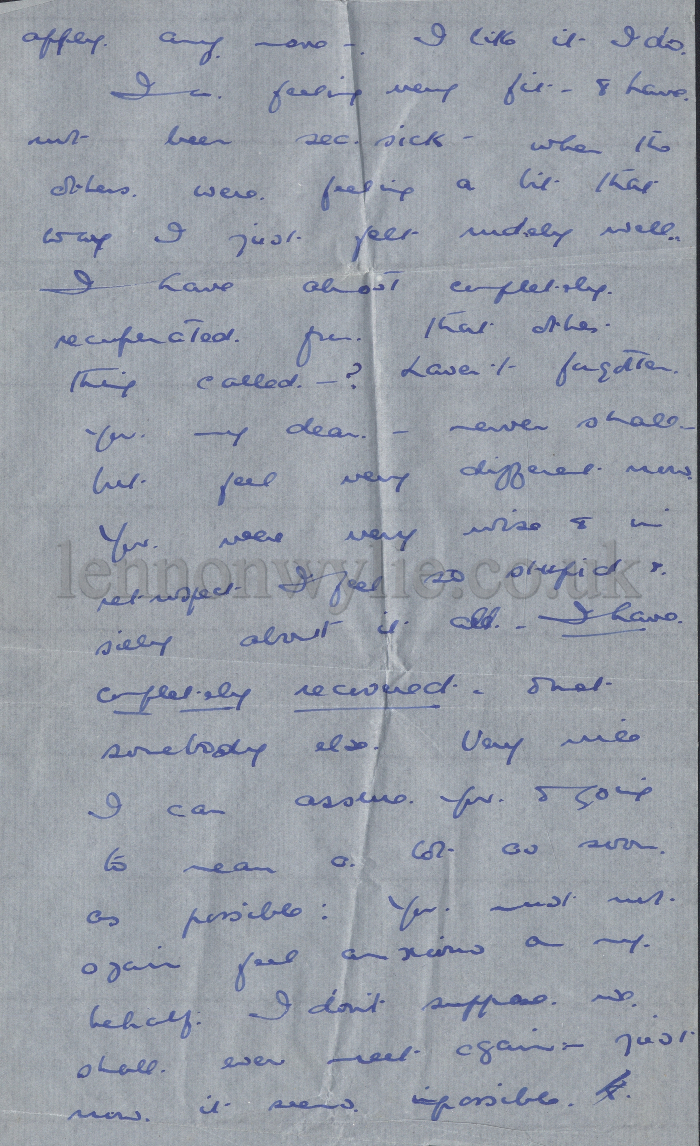 apply any more -. I like it I do.
I am feeling very fit - & have
not been sea sick - when the
others were feeling a bit that
way I just felt rudely well..
I have almost completely
recuperated from that other
thing called. - ? Haven't forgotten
you my dear. - never shall -
but feel very different now.
You were very wise & in
lennonwylie.co.uk
retrospect I feel so stupid &
silly about it all. - I have
completely recovered. -
somebody else. Very nice
I can assure you. & going
to mean a lot as soon
as possible: You must not
again feel anxious on my
behalf. I don't suppose we
shall ever meet again - just
now it seems impossible.